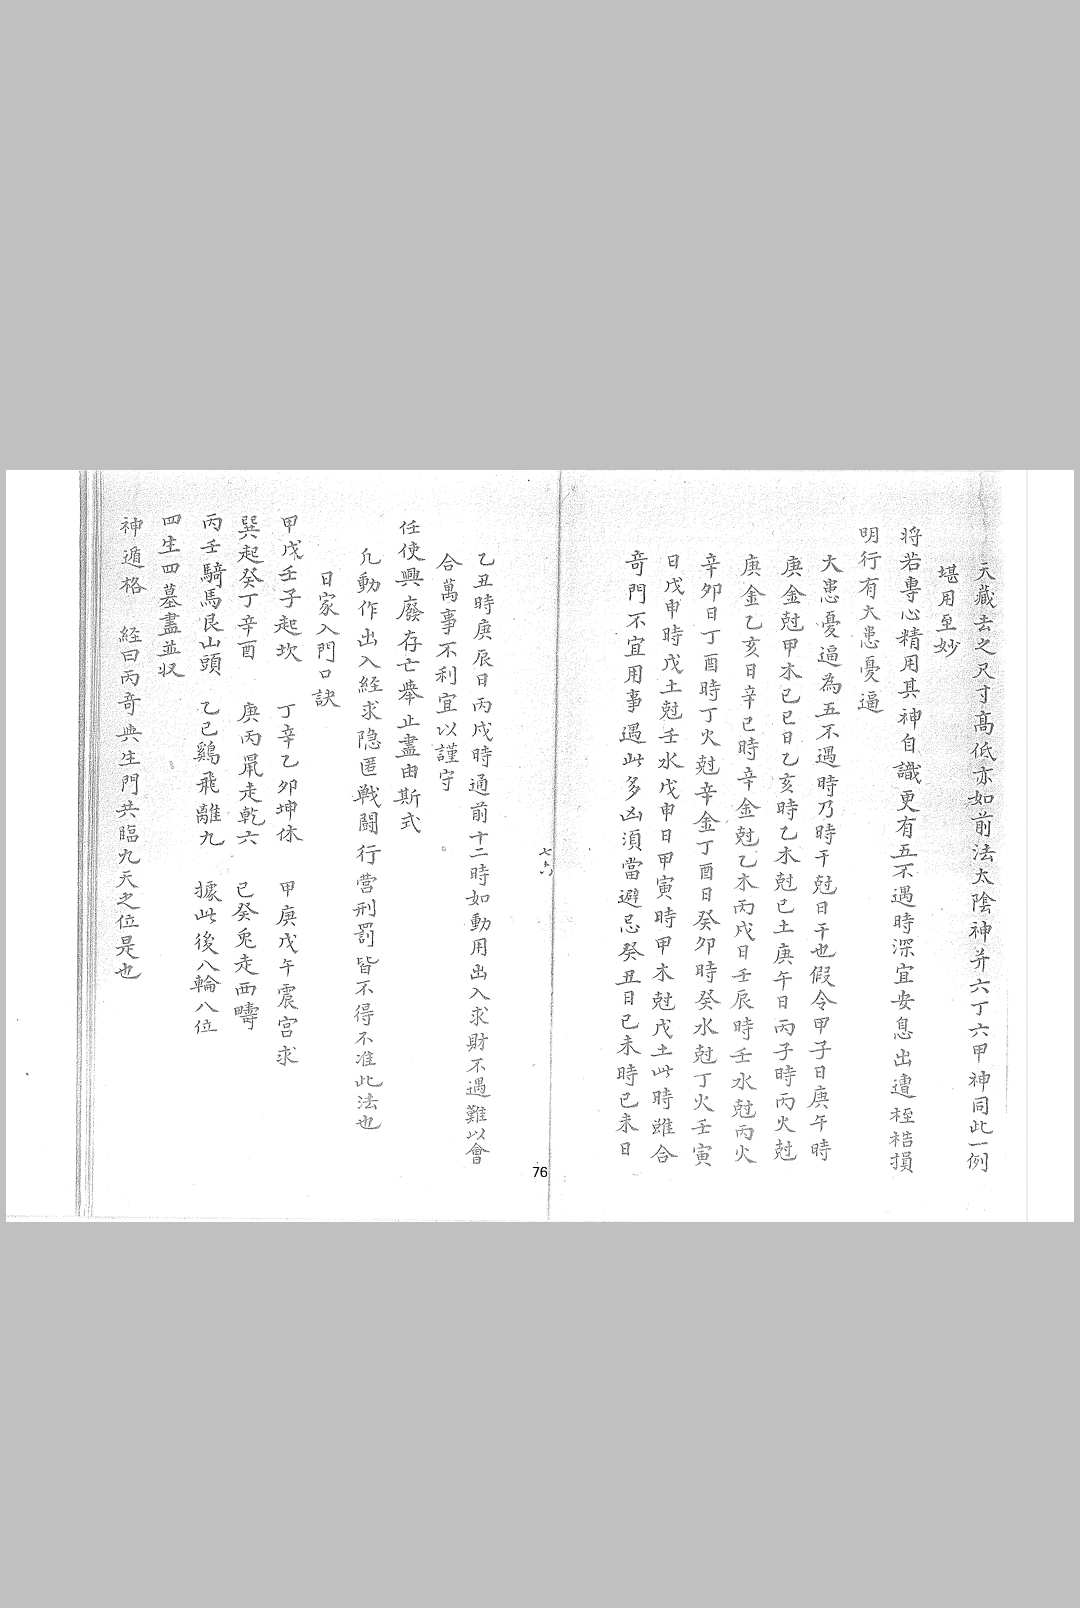 天藏去之尺寸高低亦如前法太陰神并六丁六甲神同此一例
堪用至妙
将若專心精用其神自識更有五不遇時深宜安息出遭桎梏損
明行有大患憂逼
大患憂逼為五不遇時乃時干尅日干也假令甲子日庚午時
庚金尅甲木己巳日乙亥時乙木尅己土庚午日丙子時丙火尅
庚金乙亥日辛巳時辛金尅乙木丙戌日壬辰時壬水尅丙火
辛卯日丁酉時丁火尅辛金丁酉日癸卯時癸水尅丁火壬寅
日戊申時戊土尅壬水戊申日甲寅時甲木尅戊土此時雖合
奇門不宜用事遇此多凶須當避忌癸丑日己未時己未日
七六
乙丑時庚辰日丙戌時通前十二時如動用出入求財不遇難以會
合萬事不利宜以謹守
任使興廢存亡舉止盡由斯式
凢動作出入経求隐匿戦闘行营刑罰皆不得不准此法也
日家入門口訣
甲戊壬子起坎 丁辛乙卯坤休 甲庚戊午震宫求
巽起癸丁辛酉 庚丙鼠走乾六 己癸兎走西疇
丙壬騎馬艮山頭 乙己鷄飛離九 據此後八輪八位
四生四墓盡並収
神遁格 経曰丙奇與生門共臨九天之位是也
76